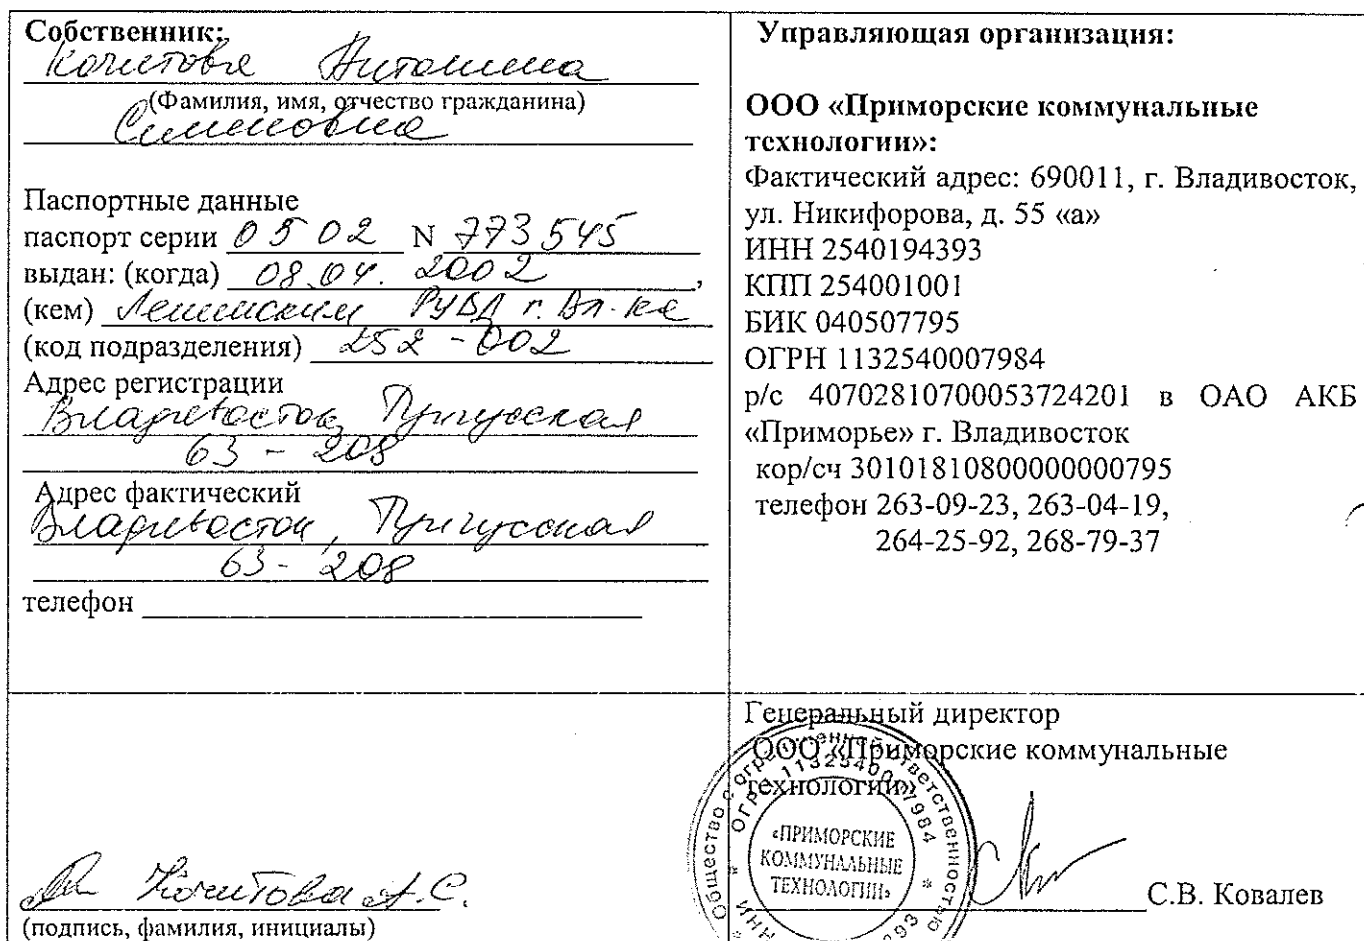 Собственник:
Кочетова Антонина
(Фамилия, имя, отчество гражданина)
Семеновна
Паспортные данные
паспорт серии 05 02 N 773545
выдан: (когда) 08.04. 2002,
(кем) Ленинским РУВД г. Вл-ка
(код подразделения) 252-002
Адрес регистрации
Владивосток,
63 - 208
Адрес фактический
Владивосток,
63 - 208
телефон
Управляющая организация:
ООО «Приморские коммунальные
технологии»:
Фактический адрес: 690011, г. Владивосток,
ул. Никифорова, д. 55 «а»
ИНН 2540194393
КПП 254001001
БИК 040507795
ОГРН 1132540007984
р/с 40702810700053724201 в ОАО АКБ
«Приморье» г. Владивосток
кор/сч 30101810800000000795
телефон 263-09-23, 263-04-19,
264-25-92, 268-79-37
Кочетова А.С.
(подпись, фамилия, инициалы)
Генеральный директор
ООО «Приморские коммунальные
технологии»
Общество с ограниченной ответственностью
ОГРН 1132540007984
«ПРИМОРСКИЕ
КОММУНАЛЬНЫЕ
ТЕХНОЛОГИИ»
С.В. Ковалев